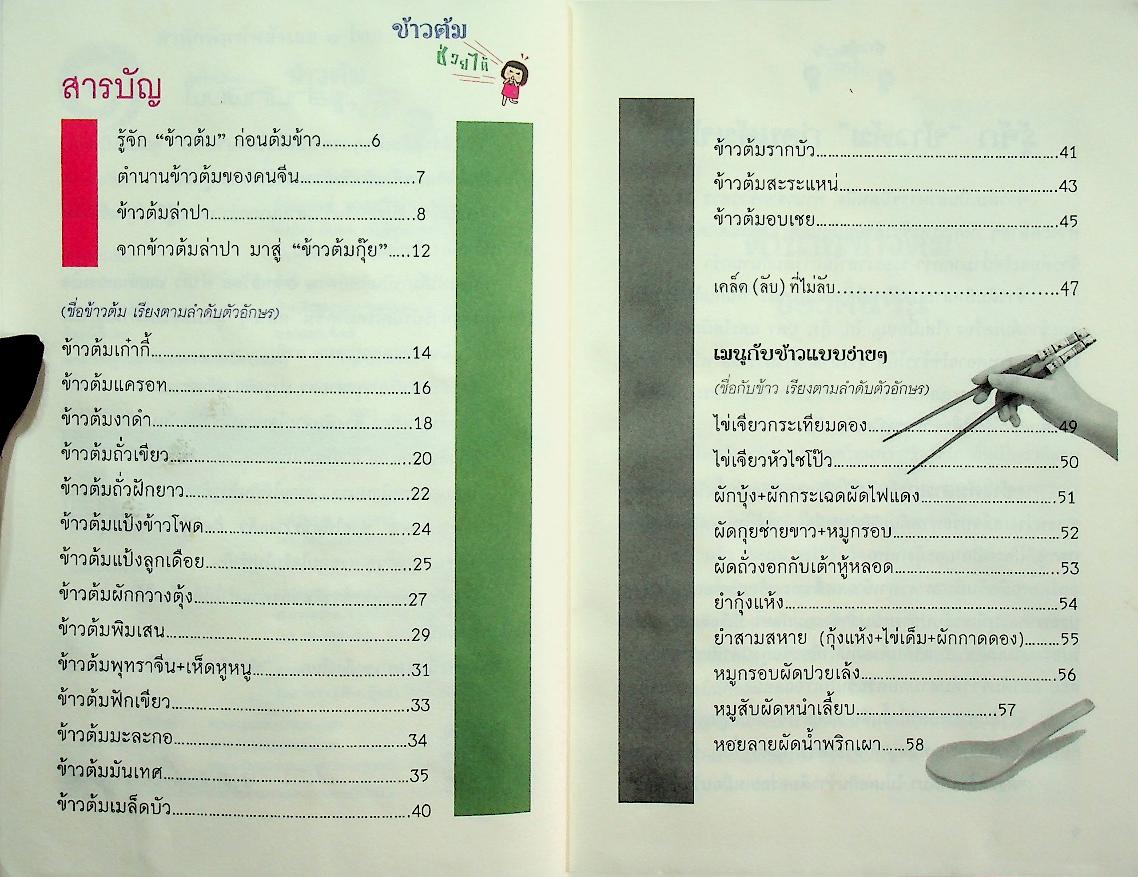 ข้าวต้ม
ช่วยได้
สารบัญ
รู้จัก “ข้าวต้ม” ก่อนต้มข้าว............6
ตำนานข้าวต้มของคนจีน............................7
ข้าวต้มล่าปา..................................................8
จากข้าวต้มล่าปา มาสู่ “ข้าวต้มกุ๊ย”.....12
(ชื่อข้าวต้ม เรียงตามลำดับตัวอักษร)
ข้าวต้มเก๋ากี้................................................................14
ข้าวต้มแครอท............................................................16
ข้าวต้มงาดำ................................................................18
ข้าวต้มถั่วเขียว............................................................20
ข้าวต้มถั่วฝักยาว........................................................22
ข้าวต้มแป้งข้าวโพด...................................................24
ข้าวต้มแป้งลูกเดือย...................................................25
ข้าวต้มผักกวางตุ้ง.....................................................27
ข้าวต้มพิมเสน............................................................29
ข้าวต้มพุทราจีน+เห็ดหูหนู.......................................31
ข้าวต้มฟักเขียว...........................................................33
ข้าวต้มมะละกอ..........................................................34
ข้าวต้มมันเทศ............................................................35
ข้าวต้มเมล็ดบัว..........................................................40
ข้าวต้มรากบัว............................................................41
ข้าวต้มสะระแหน่.......................................................43
ข้าวต้มอบเชย............................................................45
เคล็ด (ลับ) ที่ไม่ลับ................................47
เมนูกับข้าวแบบง่ายๆ
(ชื่อกับข้าว เรียงตามลำดับตัวอักษร)
ไข่เจียวกระเทียมดอง................................................49
ไข่เจียวหัวไชโป๊ว........................................................50
ผักบุ้ง+ผักกระเฉดผัดไฟแดง..................................51
ผัดกุยช่ายขาว+หมูกรอบ.........................................52
ผัดถั่วงอกกับเต้าหู้หลอด.........................................53
ยำกุ้งแห้ง...................................................................54
ยำสามสหาย (กุ้งแห้ง+ไข่เค็ม+ผักกาดดอง).........55
หมูกรอบผัดปวยเล้ง.................................................56
หมูสับผัดหนำเลี้ยบ...................................57
หอยลายผัดน้ำพริกเผา......58